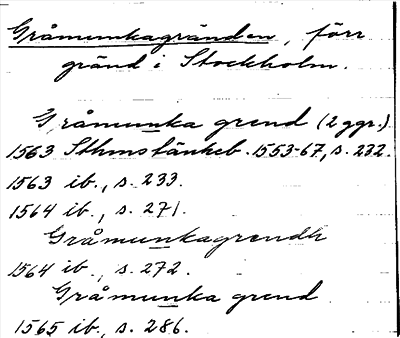 Gråmunkagränden, förr
gränd i Stockholm.
Gråmunka grend (2 ggr.)
1563 Sthms tänkeb. 1553-67, s. 232.
1563 ib., s. 233.
1564 ib., s. 271.
Gråmunkagrendh
1564 ib., s. 272.
Gråmunka grend
1565 ib., s. 286.